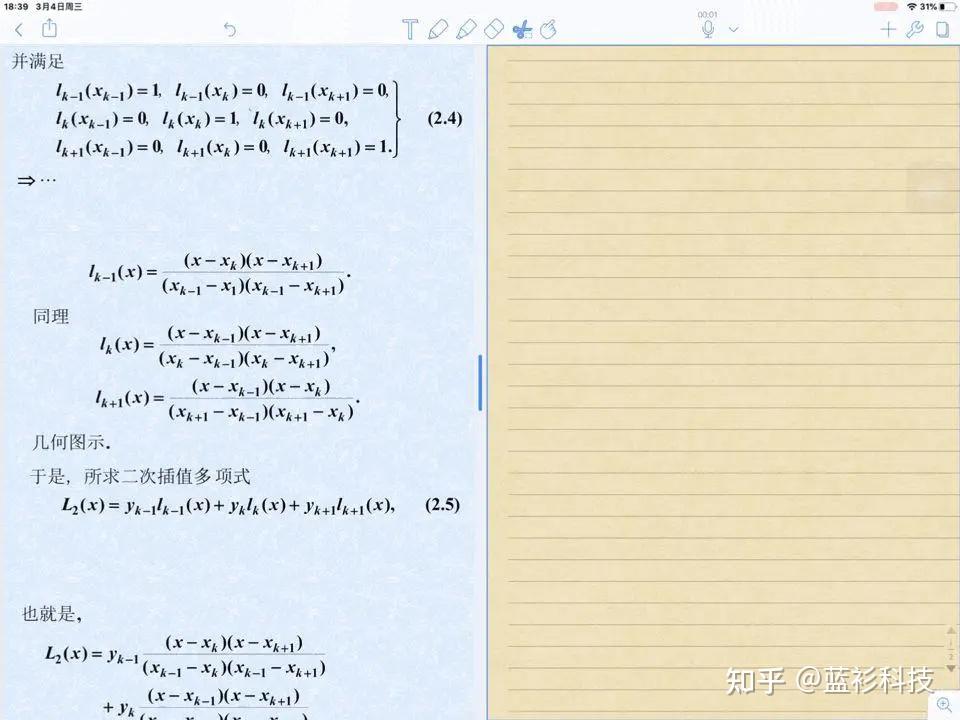 18:39 3月4日周三
31%
00:01
并满足
l_{k-1}(x_{k-1})=1, l_{k-1}(x_k)=0, l_{k-1}(x_{k+1})=0,
l_k(x_{k-1})=0, l_k(x_k)=1, l_k(x_{k+1})=0, (2.4)
l_{k+1}(x_{k-1})=0, l_{k+1}(x_k)=0, l_{k+1}(x_{k+1})=1.
⇒…
l_{k-1}(x)=\frac{(x-x_k)(x-x_{k+1})}{(x_{k-1}-x_1)(x_{k-1}-x_{k+1})}.
同理
l_k(x)=\frac{(x-x_{k-1})(x-x_{k+1})}{(x_k-x_{k-1})(x_k-x_{k+1})},
l_{k+1}(x)=\frac{(x-x_{k-1})(x-x_k)}{(x_{k+1}-x_{k-1})(x_{k+1}-x_k)}.
几何图示.
于是, 所求二次插值多项式
L_2(x)=y_{k-1}l_{k-1}(x)+y_kl_k(x)+y_{k+1}l_{k+1}(x), (2.5)
也就是,
L_2(x)=y_{k-1}\frac{(x-x_k)(x-x_{k+1})}{(x_{k-1}-x_k)(x_{k-1}-x_{k+1})}
+y_k (x-x_{k-1})(x-x_{k+1})
知乎 @蓝衫科技